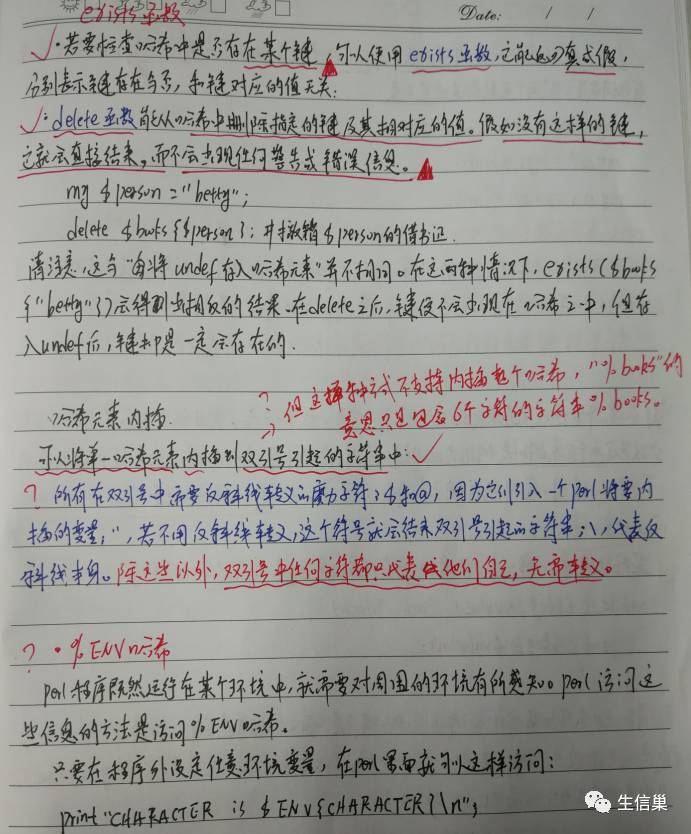 exists函数
Date: / /
✓·若要检查哈希中是否存在某个键,可以使用exists函数,它能返回真或假,
分别表示键存在与否,和键对应的值无关:
✓·delete函数能从哈希中删除指定的键及其相对应的值。假如没有这样的键,
它就会直接结束,而不会出现任何警告或错误信息。
my $person = "betty";
delete $books{$person}; #撤销$person的借书证.
请注意,这与"每将undef存入哈希元素"并不相同。在这两种情况下,exists($books
{"betty"})会得到出相反的结果.在delete之后,键便不会出现在哈希之中,但存
入undef后,键却是一定会存在的.
? 但这种方式不支持内插整个哈希,"%books"的
意思只是包含6个字符的字符串%books。
哈希元素内插.
可以将单一哈希元素内插到双引号引起的字符串中:✓
? 所有在双引号中需要反斜线转义的魔力字符:$和@,因为它们引入一个perl将要内
插的变量;",若不用反斜线转义,这个符号就会结束双引号引起的字符串;\,代表反
斜线本身。除这些以外,双引号中任何字符都只代表他们自己,无需转义。
? ·%ENV哈希
perl程序既然运行在某个环境中,就需要对周围的环境有所感知。perl访问这
些信息的方法是访问%ENV哈希。
只要在程序外设定任意环境变量,在perl里面就可以这样访问:
print "CHARACTER is $ENV{CHARACTER}\n";
生信巢